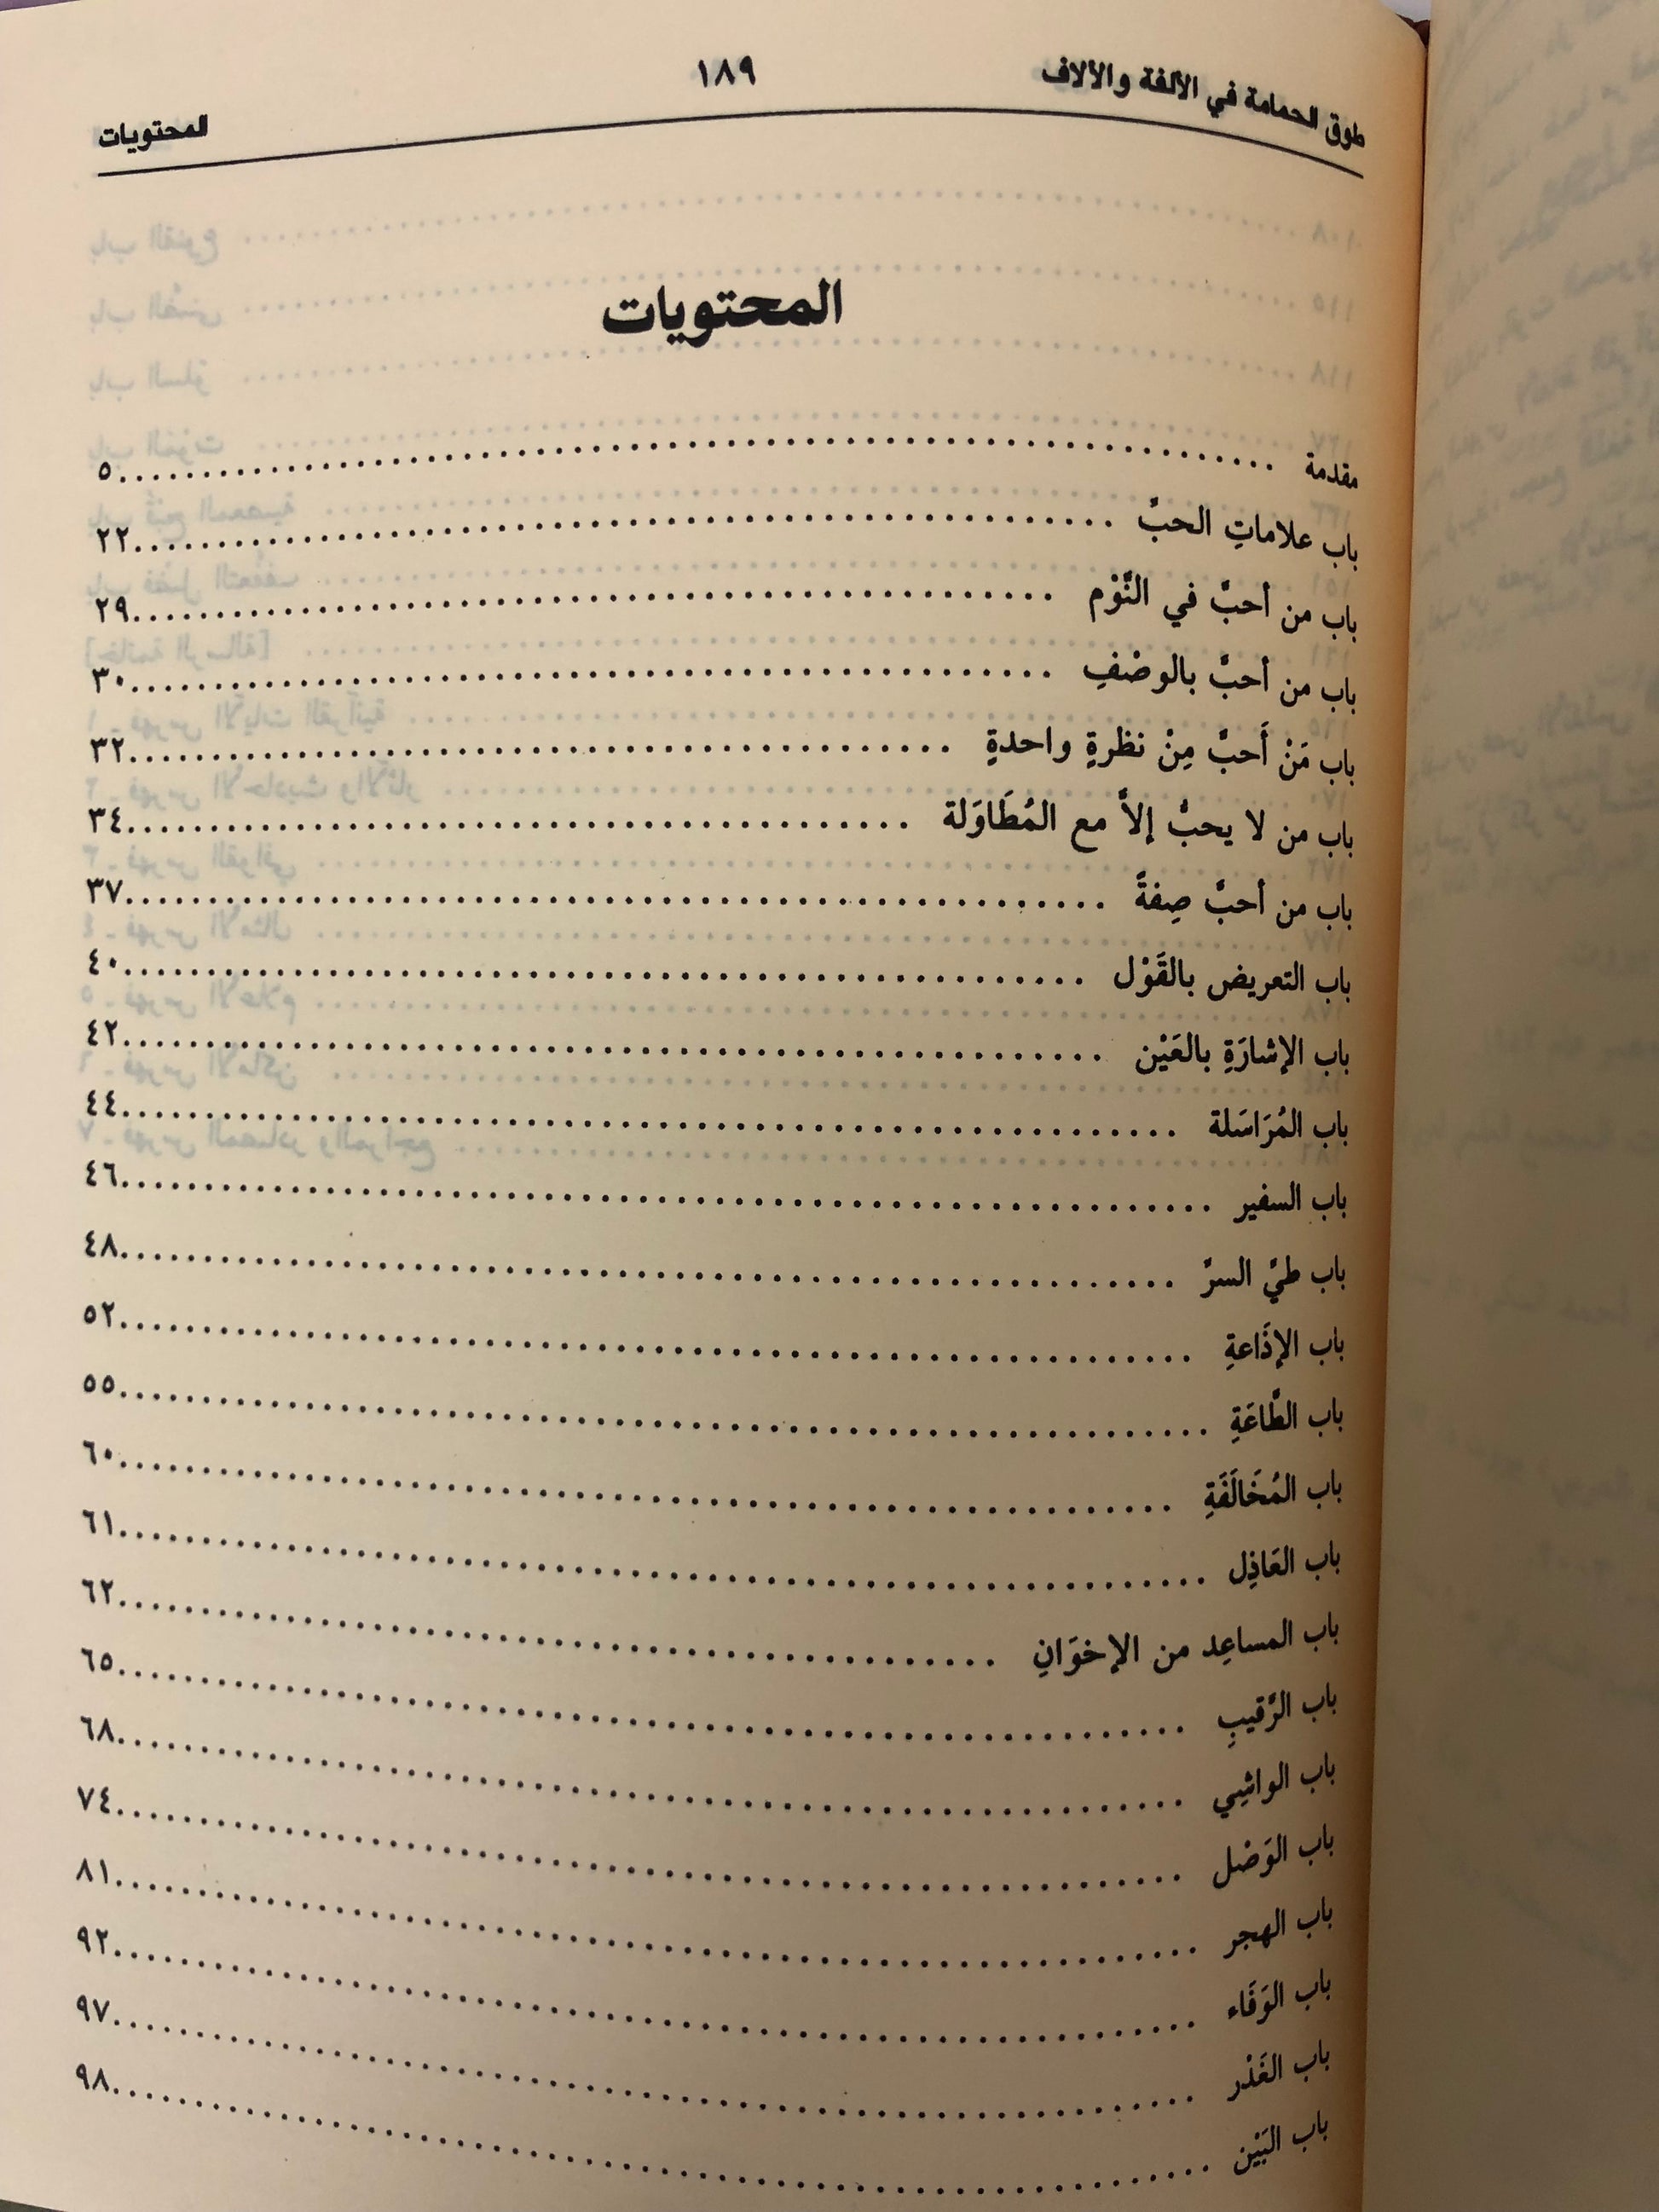 طوق الحمامة في الألفة والألاف ١٨٩ المحتويات
المحتويات
مقدمة ..... ٥
باب علاماتِ الحبِّ ..... ٢٢
باب من أحبَّ في النَّوْم ..... ٢٩
باب من أحبَّ بالوصْفِ ..... ٣٠
باب مَنْ أَحبَّ مِنْ نظرةٍ واحدةٍ ..... ٣٢
باب من لا يحبُّ إلاَّ مع المُطَاوَلة ..... ٣٤
باب من أحبَّ صِفةً ..... ٣٧
باب التعريض بالقَوْل ..... ٤٠
باب الإشارَةِ بالعَيْن ..... ٤٢
باب المُرَاسَلة ..... ٤٤
باب السفير ..... ٤٦
باب طيِّ السرِّ ..... ٤٨
باب الإذَاعةِ ..... ٥٢
باب الطَّاعَةِ ..... ٥٥
باب المُخَالَفَةِ ..... ٦٠
باب العَاذِل ..... ٦١
باب المساعِد من الإخوَانِ ..... ٦٢
باب الرَّقيبِ ..... ٦٥
باب الواشِي ..... ٦٨
باب الوَصْل ..... ٧٤
باب الهجر ..... ٨١
باب الوَفَاء ..... ٩٢
باب الغَدْر ..... ٩٧
باب البَيْن ..... ٩٨